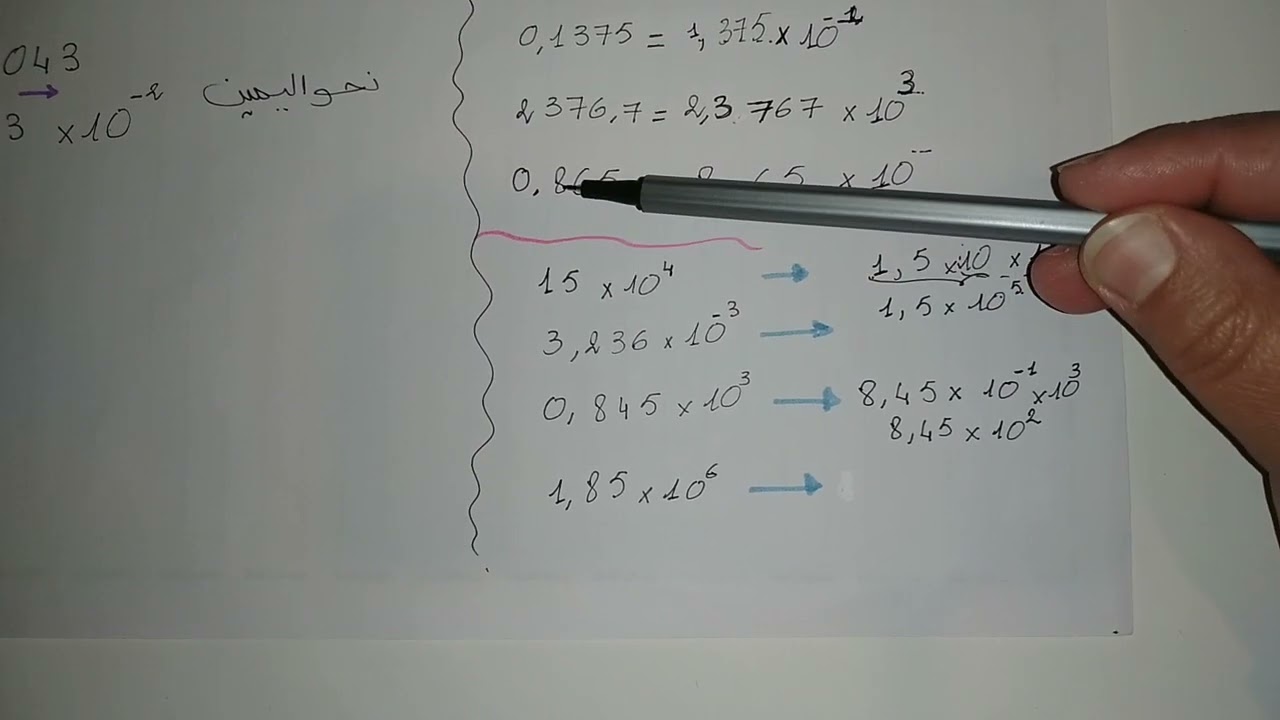 043
3 × 10⁻² نحو اليمين
0,1375 = 1,375 × 10⁻¹
2376,7 = 2,3767 × 10³
0,865 8,65 × 10⁻
15 × 10⁴ → 1,5 × 10 ×
1,5 × 10⁵
3,236 × 10⁻³ →
0,845 × 10³ → 8,45 × 10⁻¹ × 10³
8,45 × 10²
1,85 × 10⁶ →